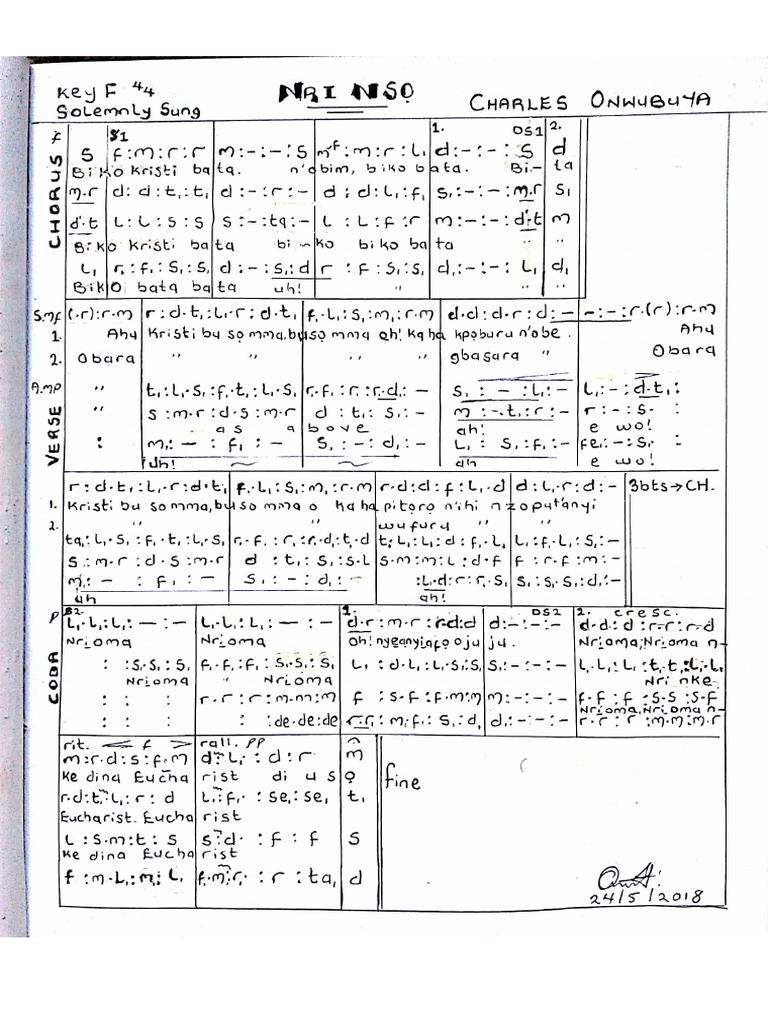 Key F 4/4 NRI NSỌ
Solemnly Sung CHARLES ONWUBUYA
CHORUS f S1 1. DS1 2.
s | f : m : r : r | m : - : - : s | m^f : m : r : l, | d : - : - : s | d
Biko Kristi ba ta. n'obim, biko bata. Bi- ta
m.r | d : d : t, : t, | d : - : r : - | d : d : l, : f, | s, : - : - : m.r | s,
d'.t | l : l : s : s | s : - : ta : - | l : l : f : r | m : - : - : d'.t | m
Biko Kristi ba ta bi - ko biko ba ta "
l, | r, : f, : s, : s, | d : - : s, : d | r : f : s, : s, | d, : - : - : l, | d,
Biko bata ba ta uh! " "
S.mf (.r) : r.m | r : d.t, : l,.r : d.t, | f,.l, : s, : m, : r.m | d.d : d.r : d : - | - : - : r.(r) : r.m
1. Ahu Kristi bu so mma, bu so mma oh! ka ha kpoburu n'obe. Ahu
2. Obara " " " " gbasara " Obara
A.mp " t, : l,.s, : f,.t, : l,.s, | r,.f, : r, : r,.d, : - | s, : - : l, : - | l, : - : d.t, :
VERSE " s : m.r : d.s : m.r | d : t, : s, : - | m : -.t, : r, : - | r : - : s. :
as a bove ah! e wo!
: m, : - : f, : - | s, : - : d, : - | l, : s, : f, : - | fe, : - : s, :
uh! ah e wo!
r : d.t, : l,.r : d.t, | f,.l, : s, : m, : r.m | r.d : d : f : l,.d | d : l,.r : d : - | 3bts → CH.
1. Kristi bu so mma, bu so mma o ka ha pitoro n'ihi nzoputanyi
2. " " wufuru " "
ta, : l,.s, : f,.t, : l,.s, | r,.f, : r, : r,.d, : t,.d | t, : l,.l, : d : f,.l, | l, : f,.l, : s, : -
s : m.r : d.s : m.r | d : t, : s, : s.l | s.m : m : l : d.f | f : r.f : m : -
m, : - : f, : - | s, : - : d, : - | : l,.d : r : r,.s, | s, : s,.s, : d, : -
uh ah!
CODA P S2 1. DS2 2. cresc.
l,.l, : l, : - : - | l,.l, : l, : - : - | d.r : m.r : r.d : d | d : - : - : - | d.d : d : r.r : r.d
Nrioma Nrioma Oh! nyeanyiafọ oju ju. Nrioma, Nrioma n-
: : s,.s, : s, | f,.f, : f, : s,.s, : s, | l, : d.l, : l,.s, : s, | s, : - : - : - | l,.l, : l, : t,.t, : l,.l,
Nrioma " Nrioma Nri nke
: : : | r.r : r : m.m : m | f : s.f : f.m : m | m : - : - : - | f.f : f : s.s : s.f
Nrioma, Nrioma n-
: : : | : : de.de : de | r,.r, : m,.f, : s, : d, | d, : - : - : - | r.r : r : m.m : m.r
rit. < f > rall. pp
m : r.d : s : f.m | d : l, : d : r | m
Ke dina Eucha rist di u sọ
r.d : t, : l, : r : d | l,.f, : se, : se, | t, fine
Eucharist. Eucha rist
l : s.m : t : s | s.d : f : f | s
Ke dina Eucha rist
f : m.l, : m, : l, | f,.m, : r, : r : ta, | d
24/5/2018